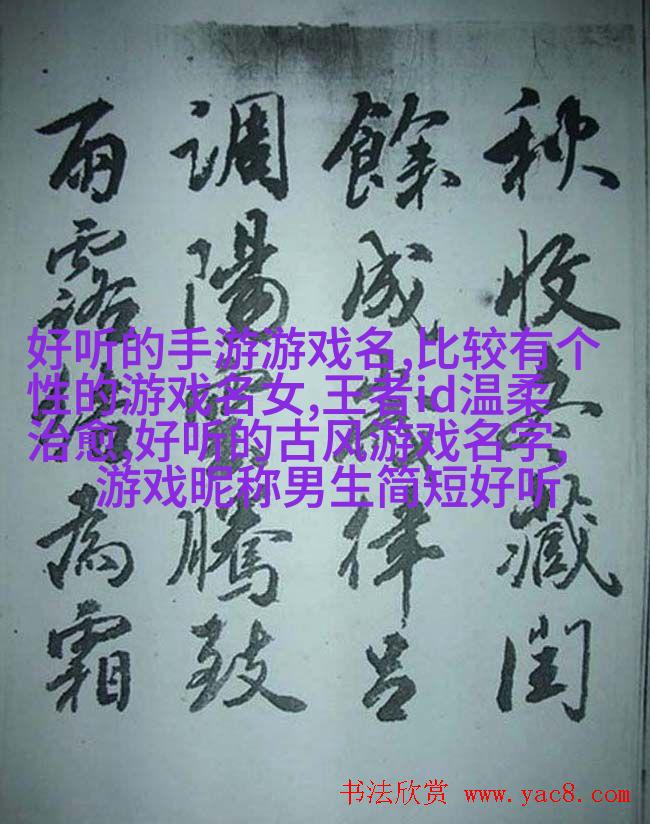 秋收冬藏閏
餘成歲律呂
調陽雲騰致
雨露結為霜
好听的手游游戏名,比较有个
性的游戏名女,王者id温柔
治愈,好听的古风游戏名字,
游戏昵称男生简短好听
书法欣赏 www.yac8.com